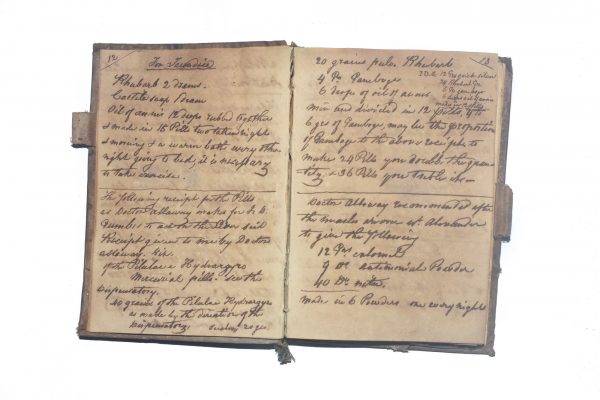 12
For Jaundice
Rhubarb 2 drams.
Castile soap 1 dram
Oil of annis 12 drops rubbed together
& made in 15 Pills two taken night
& morning & a warm bath every other
night going to bed, it is necessary
to take exercise.
The following receipt for the Pills
as Doctor Alloway makes for
to act on the said
Receipt given to me by Doctor
Alloway. Viz.
of the Pilulae Hydrargyro
Mercurial pills. See the
Dispensatory.
40 grains of the Pilulae Hydrargyro
as made by the direction of the
Dispensatory.
13
20 grains pulv. Rhubarb
4 Do Gamboge
6 drops of oil of annis
mix and divided in 12 Pills, 4 to
6 grs of Gamboge, may be the proportion
of Gamboge to the above receipt to
make 24 Pills you double the quan-
tity, & 36 Pills you treble it
Doctor Alloway recommended after
the measles in one Wm Alexander
to give the following
12 Grs calomel
9 Do antimonial Powder
40 Do nitre.
made in 6 Powders one every night